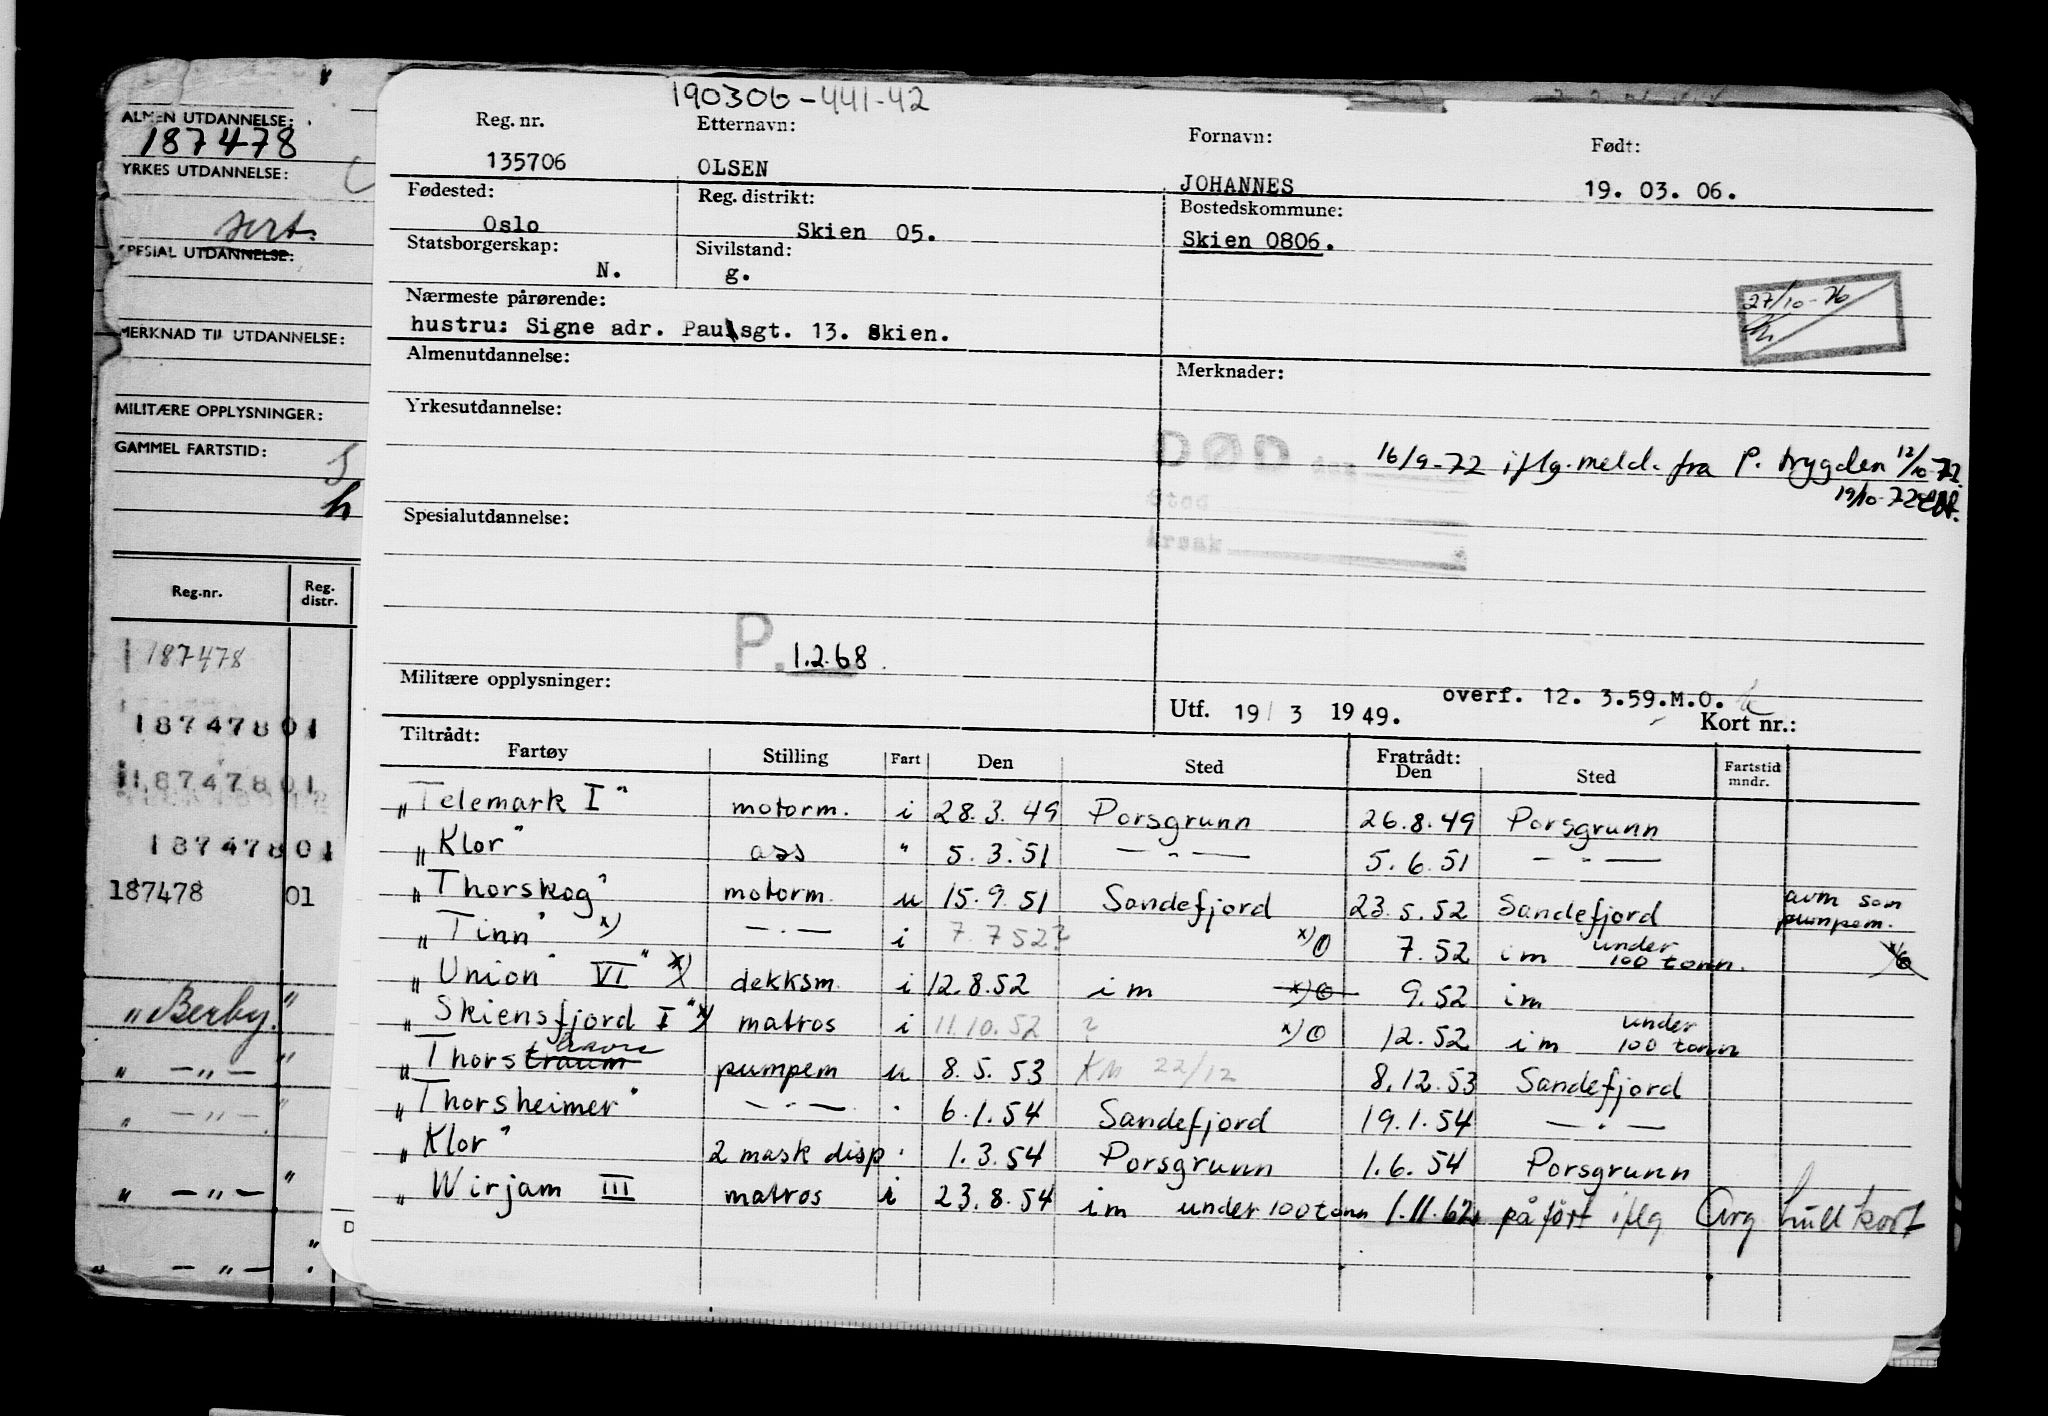 190306-441-42
ALMEN UTDANNELSE:
187478
YRKES UTDANNELSE:
sert.
SPESIAL UTDANNELSE:
MERKNAD TIL UTDANNELSE:
MILITÆRE OPPLYSNINGER:
GAMMEL FARTSTID:
h
Reg.nr. Reg. distr.
187478
187478 01
187478 01
187478 01
187478 01
"Berby."
" —"— "
" —"— "
" —"— "
" —"— "
Reg. nr. Etternavn: Fornavn: Født:
135706 OLSEN JOHANNES 19. 03. 06.
Fødested: Reg. distrikt: Bostedskommune:
Oslo Skien 05. Skien 0806.
Statsborgerskap: Sivilstand:
N. g.
27/10-76
Nærmeste pårørende:
hustru: Signe adr. Paulsgt. 13. Skien.
Almenutdannelse: Merknader:
Yrkesutdannelse:
DØD den 16/9-72 iflg. meld. fra P. trygden 12/10-72.
Sted 19/10-72
Årsak
Spesialutdannelse:
P. 1.2.68.
Militære opplysninger:
overf. 12. 3.59.M.O.
Utf. 19/3 1949. Kort nr.:
Tiltrådt: Fartøy Stilling Fart Den Sted Fratrådt: Den Sted Fartstid mndr.
"Telemark I" motorm. i 28.3.49 Porsgrunn 26.8.49 Porsgrunn
"Klor" ass " 5.3.51 — " — 5.6.51 — " —
"Thorskog" motorm. u 15.9.51 Sandefjord 23.5.52 Sandefjord avm som pumpem.
"Tinn" x) — " — i 7.7 52? x) 7.52 im under 100 tonn.
"Union VI" x) dekksm. i 12.8.52 im x) 9.52 im
"Skiensfjord I" x) matros i 11.10.52 ? x) 12.52 im under 100 tonn
"Thorstraum havre pumpem u 8.5.53 KM 22/12 8.12.53 Sandefjord
"Thorsheimer" — " — " 6.1.54 Sandefjord 19.1.54 — " —
"Klor" 2 mask disp " 1.3.54 Porsgrunn 1.6.54 Porsgrunn
"Wirjam III matros i 23.8.54 im under 100 tonn 1.11.62 påført iflg Arg hullkort